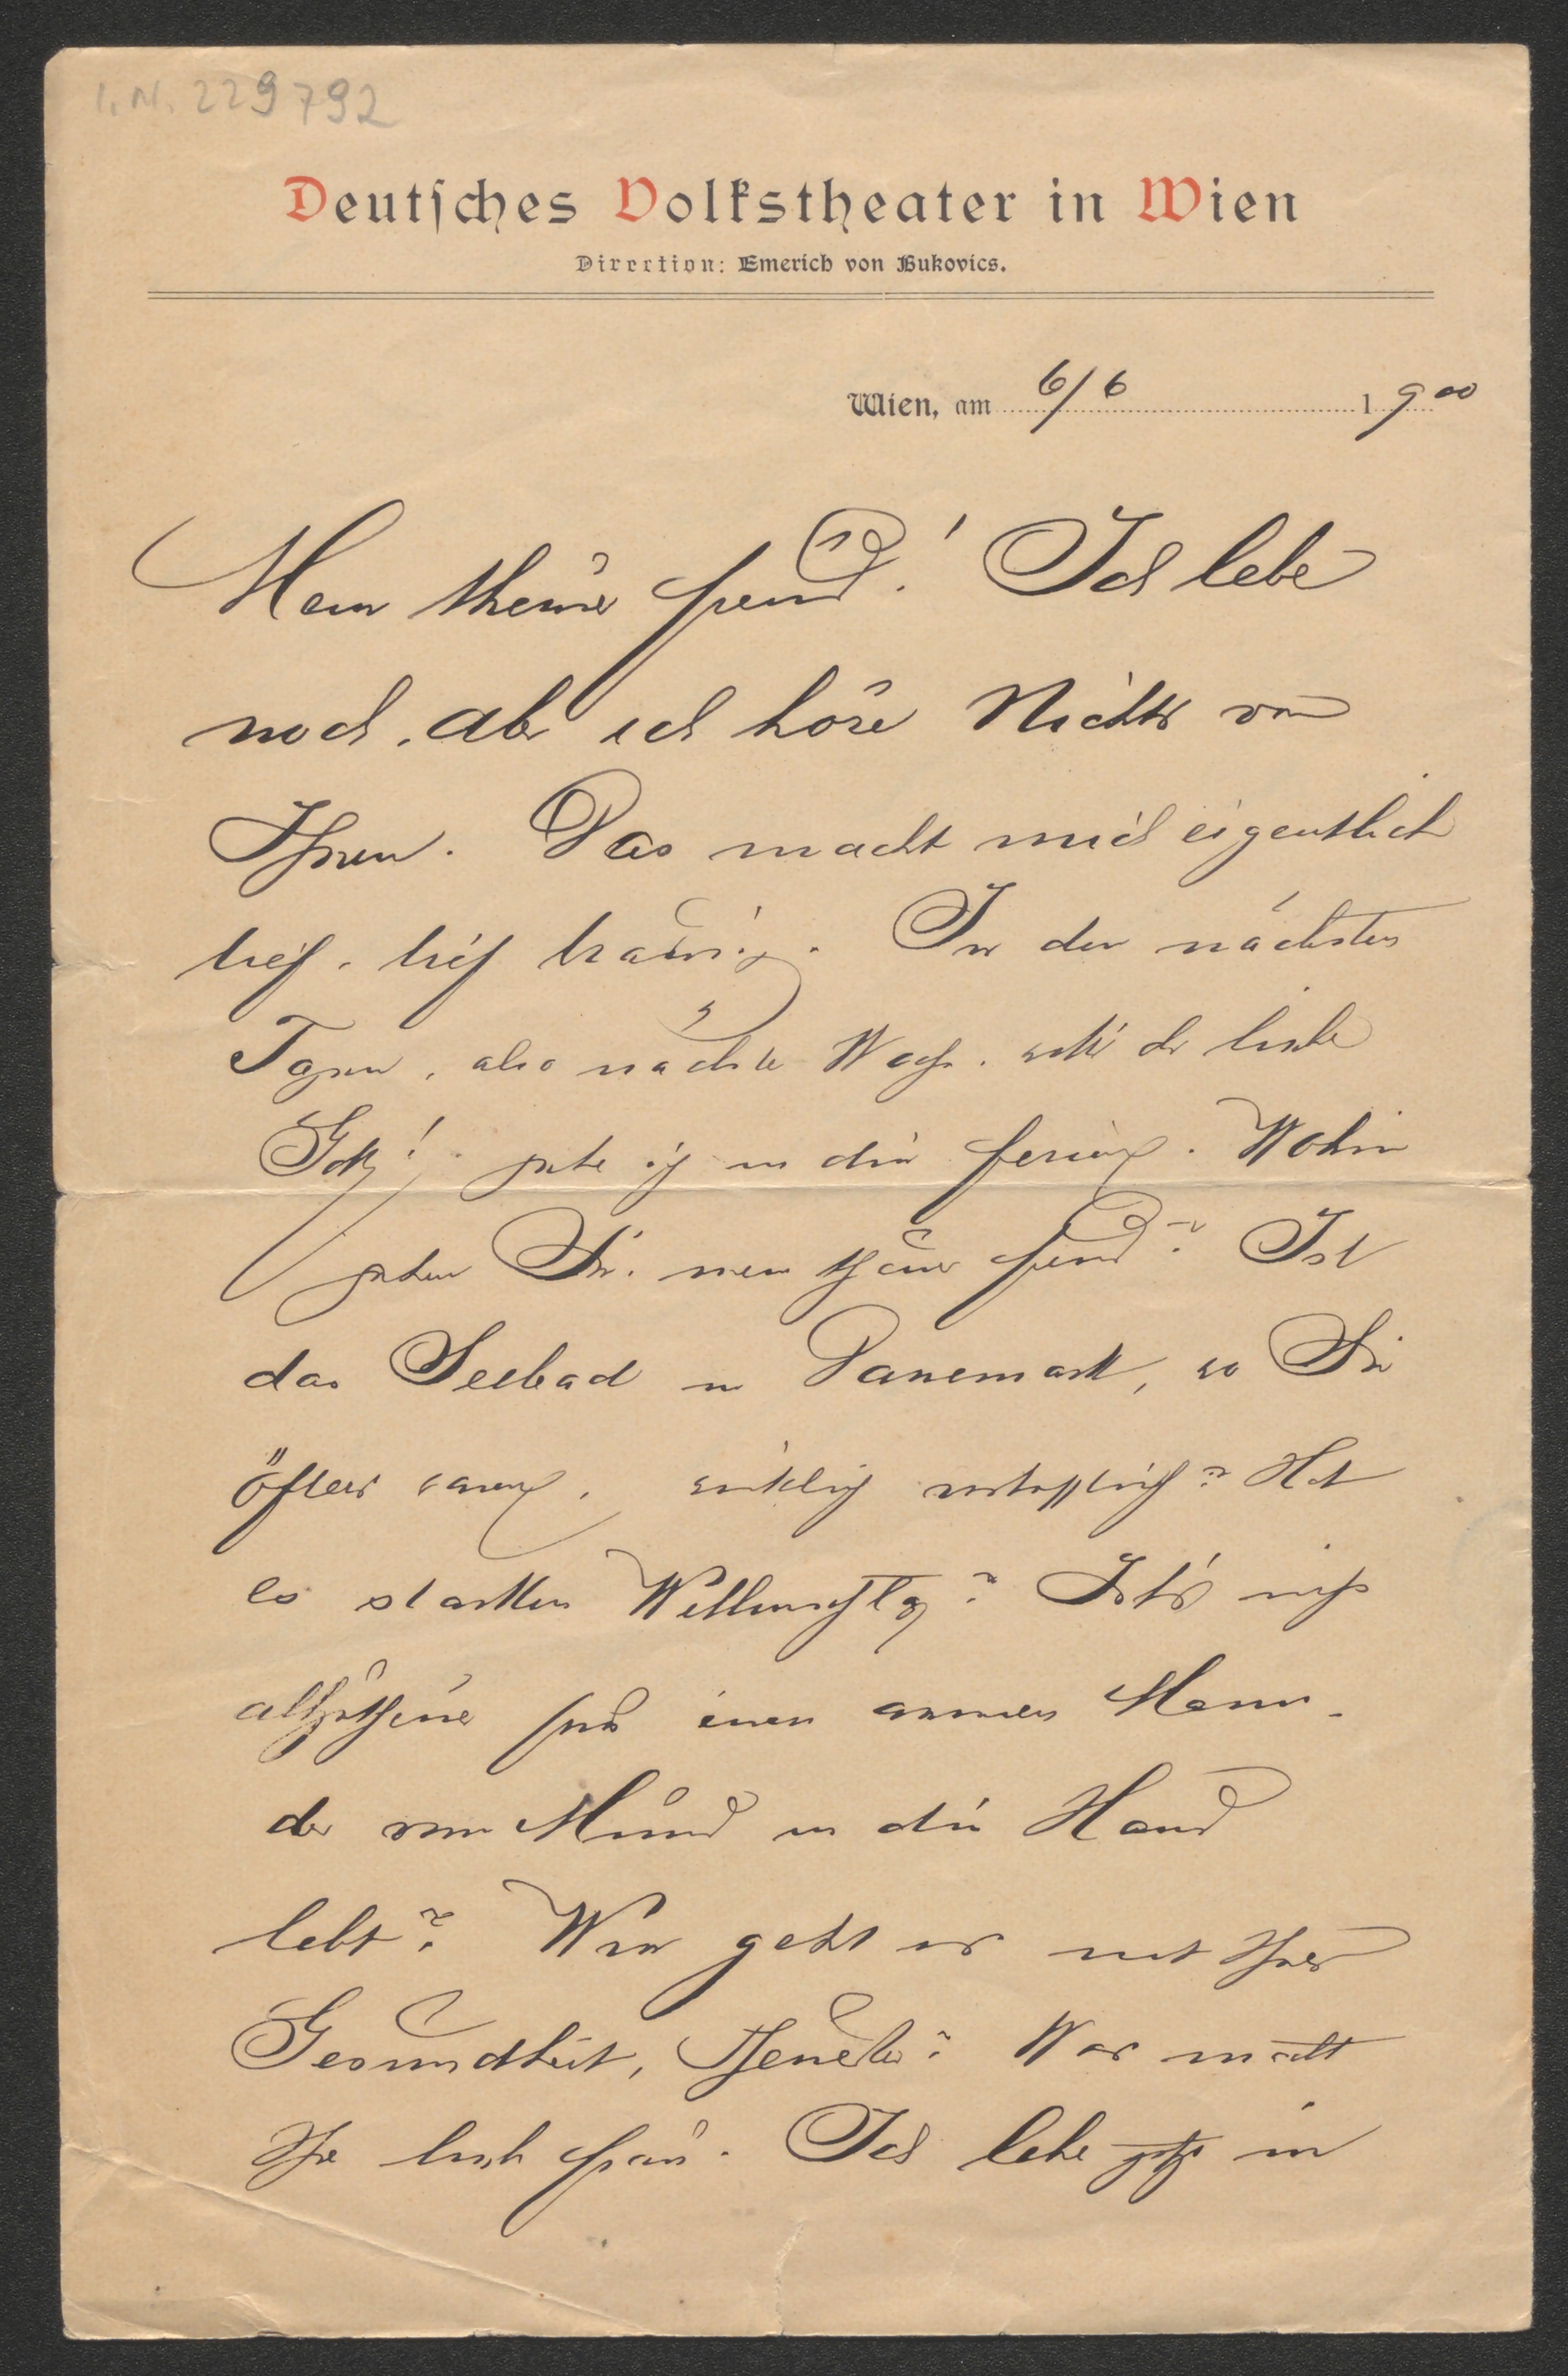 I. N. 229792
Deutſches Volkstheater in Wien
Direction: Emerich von Bukovics.
Wien, am 6/6 1900
Mein theurer Freund! Ich lebe
noch, aber ich höre Nichts von
Ihnen. Das macht mich eigentlich
tief, tief traurig. In den nächsten
Tagen, also nächste Woche, will's der liebe
Gott! gehe ich in die Ferien. Wohin
gehen Sie, mein theurer Freund? Ist
das Seebad in Dänemark, wo Sie
öfters waren, wirklich vortrefflich? Hat
es starken Wellenschlag? Ist's nicht
allzutheuer für einen armen Mann,
der vom Mund in die Hand
lebt? Wie geht es mit Ihrer
Gesundheit, Theuerster? Was macht
Ihre liebe Frau. Ich lebe jetzt in